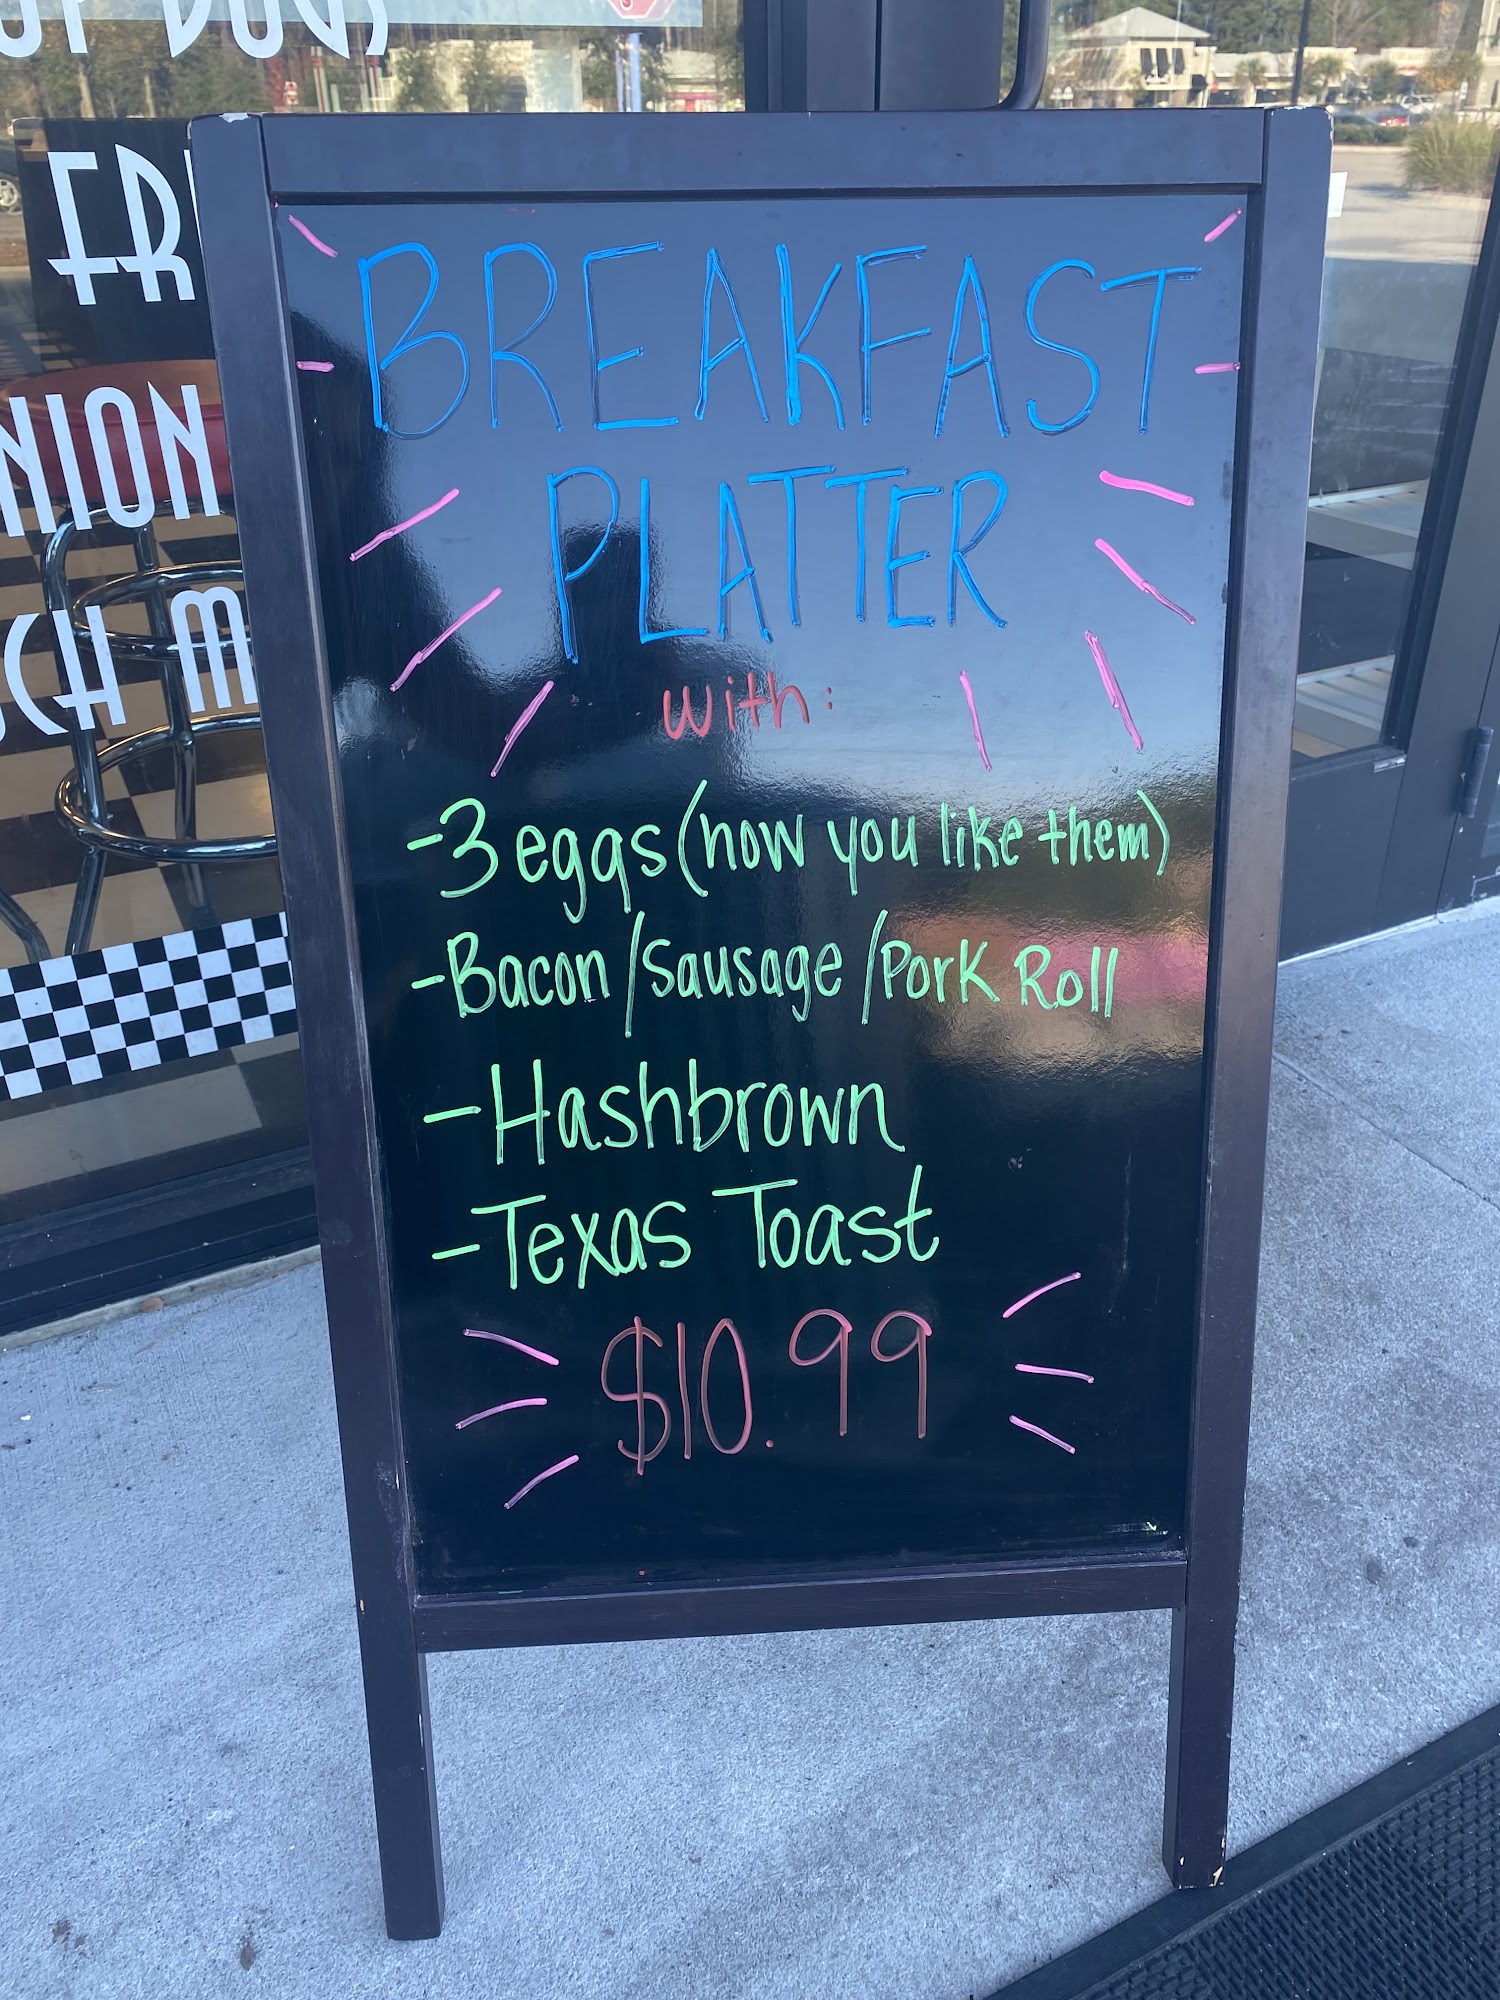 DOGS
FR
NION
CH M
BREAKFAST
PLATTER
with:
-3 eggs (how you like them)
-Bacon/Sausage/Pork Roll
-Hashbrown
-Texas Toast
$10.99